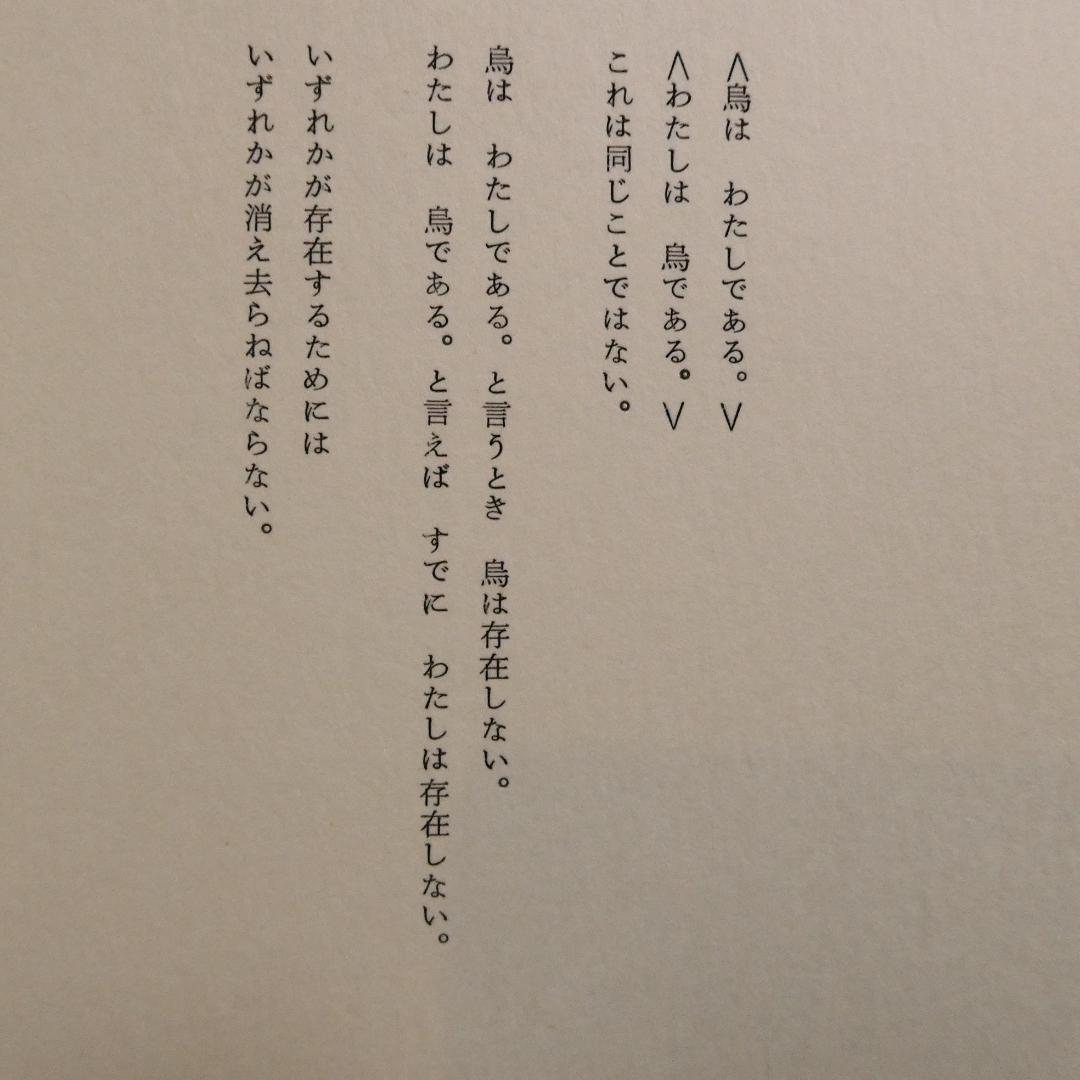 ＜鳥は　わたしである。＞
＜わたしは　鳥である。＞
これは同じことではない。
鳥は　わたしである。と言うとき　鳥は存在しない。
わたしは　鳥である。と言えば　すでに　わたしは存在しない。
いずれかが存在するためには
いずれかが消え去らねばならない。